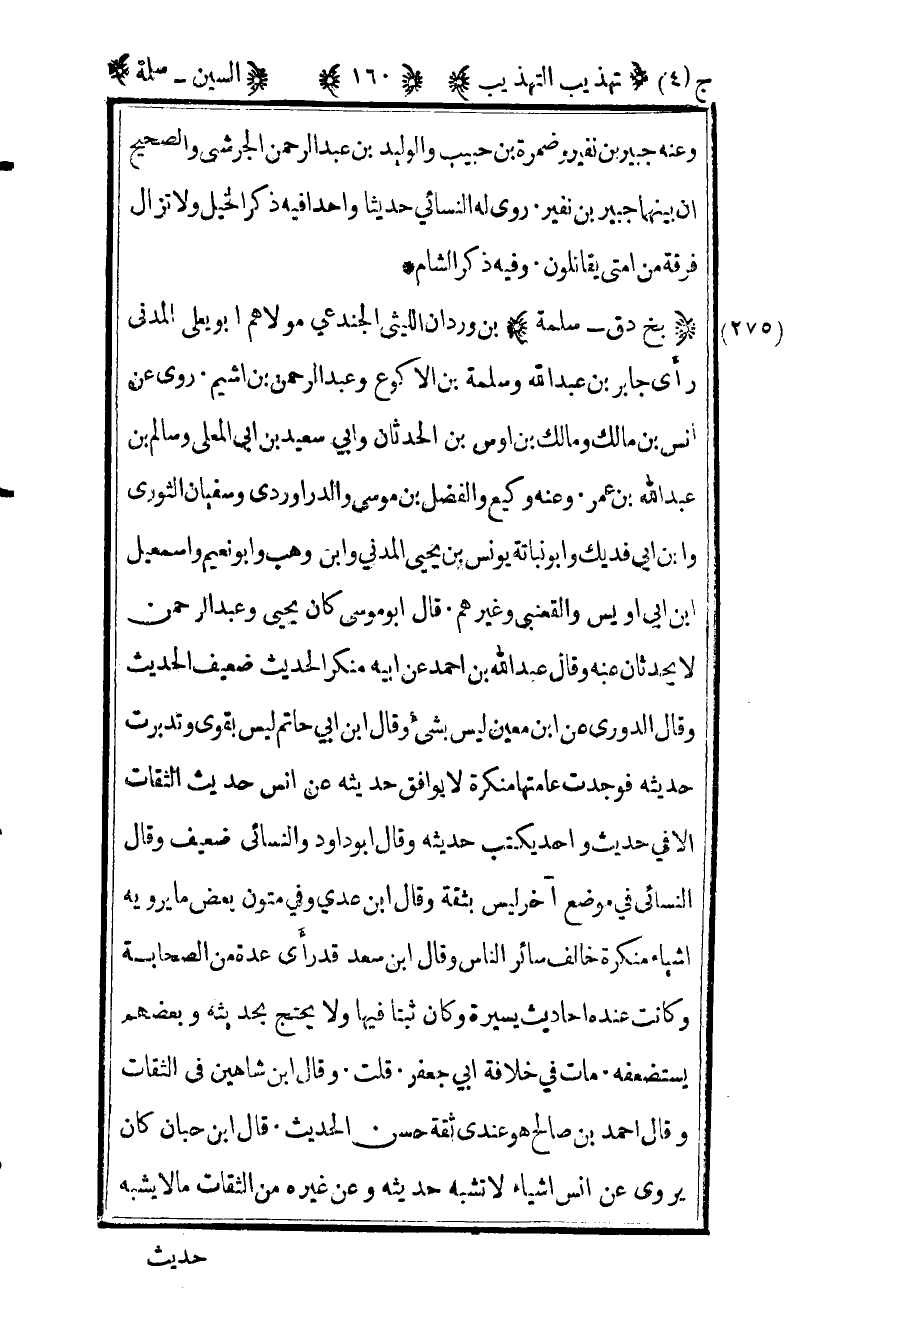 ج (٤) ﴿ تهذيب التهذيب ﴾ ﴿ ١٦٠ ﴾ ﴿ السين ـ سلمة ﴾
وعنه جبير بن نفير وضمرة بن حبيب والوليد بن عبدالرحمن الجرشى والصحيح
ان بينهما جبير بن نفير . روى له النسائي حديثا واحدا فيه ذكر الخيل ولا تزال
فرقة من امتى يقاتلون . وفيه ذكر الشام *
(٢٧٥) ﴿ بخ دق ـ سلمة ﴾ بن وردان الليثى الجندعي مولاهم ابو يعلى المدنى
رأى جابر بن عبدالله وسلمة بن الاكوع وعبدالرحمن بن اشيم . روى عن
أنس بن مالك ومالك بن اوس بن الحدثان وابي سعيد بن ابي المعلى وسالم بن
عبدالله بن عمر . وعنه وكيع والفضل بن موسى والدراوردى وسفيان الثورى
وابن ابي فديك وابو نباتة يونس بن يحيى المدني وابن وهب وابو نعيم واسمعيل
ابن ابي اويس والقعنبي وغيرهم . قال ابو موسى كان يحيى وعبدالرحمن
لا يحدثان عنه وقال عبدالله بن احمد عن ابيه منكر الحديث ضعيف الحديث
وقال الدورى عن ابن معين ليس بشئ وقال ابن ابي حاتم ليس بقوى وتدبرت
حديثه فوجدت عامتها منكرة لا يوافق حديثه عن انس حديث الثقات
الا في حديث واحد يكتب حديثه وقال ابو داود والنسائى ضعيف وقال
النسائى في موضع آخر ليس بثقة وقال ابن عدي وفي متون بعض ما يرويه
اشياء منكرة خالف سائر الناس وقال ابن سعد قد رأى عدة من الصحابة
وكانت عنده احاديث يسيرة وكان ثبتا فيها ولا يحتج بحديثه وبعضهم
يستضعفه . مات في خلافة ابي جعفر . قلت . وقال ابن شاهين فى الثقات
وقال احمد بن صالح هو عندى ثقة حسن الحديث . قال ابن حبان كان
يروى عن انس اشياء لا تشبه حديثه وعن غيره من الثقات مالا يشبه
حديث